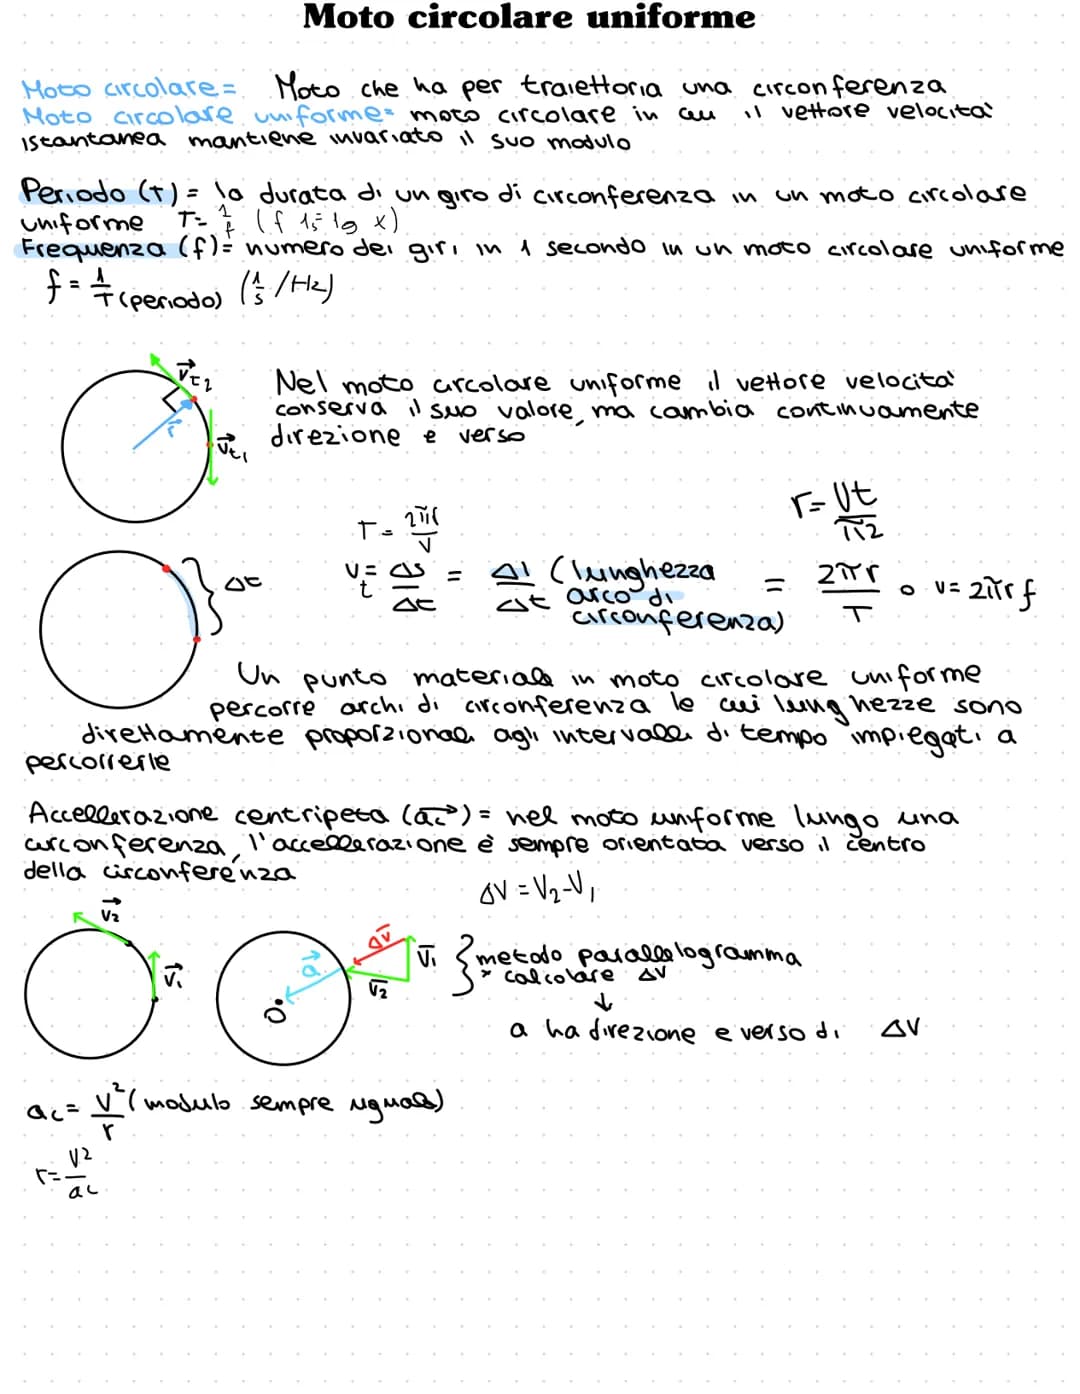 Moto circolare uniforme
Moto circolare = Moto che ha per traiettoria una circonferenza
Moto circolare uniforme= moto circolare in cui il vettore velocità
istantanea mantiene invariato il suo modulo
Periodo (T) = la durata di un giro di circonferenza in un moto circolare
uniforme T= 1/f
Frequenza (f)= numero dei giri in 1 secondo in un moto circolare uniforme
f = 1/T (periodo) (1/s /Hz)
v⃗t2
r⃗
v⃗t1
Nel moto circolare uniforme il vettore velocità
conserva il suo valore, ma cambia continuamente
direzione e verso
r= vt/π2
T = 2πr/v
Δt
v= Δs/Δt = Δl/Δt (lunghezza
t
arco di
circonferenza)
= 2πr/T o v= 2πrf
Un punto materiale in moto circolare uniforme
percorre archi di circonferenza le cui lunghezze sono
direttamente proporzionali agli intervalli di tempo impiegati a
percorrerle
Accellerazione centripeta (a⃗c) = nel moto uniforme lungo una
circonferenza, l'accellerazione è sempre orientata verso il centro
della circonferenza
ΔV = V2-V1
v⃗2
v⃗1
a⃗
O
Δv⃗
v⃗1
v⃗2
metodo parallelogramma
x calcolare ΔV
↓
a ha direzione e verso di ΔV
ac= v²/r (modulo sempre uguale)
r= v²/ac